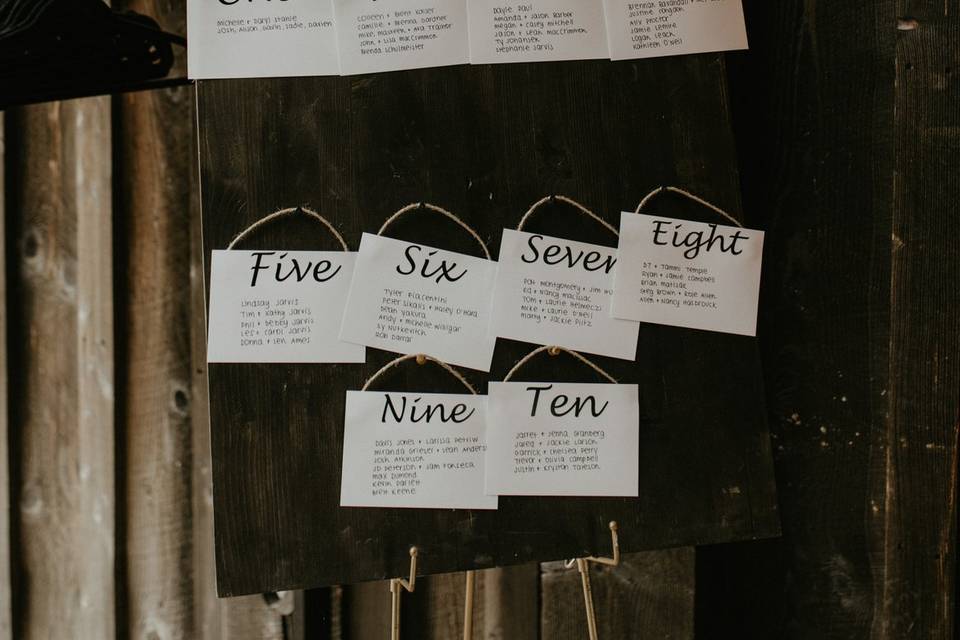 Michelle + Daryl Stanie
Josh, Alison, Darin, Sadie, Daxien
Colleen + Brent Kaiser
Camille + Brenna Gardner
Mike, Maureen + Ava Trainor
John + Lisa MacCrimmon
Brenda Schulmeister
Dayle Paul
Amanda + Jason Barber
Megan + Casey Mitchell
Jason + Leah MacCrimmon
Ty Johansek
Stephanie Jarvis
Brennan
Justine
Alix Proctor
Jamie Lemire
Logan Leach
Kathleen O'Neil
Five
Lindsay Jarvis
Tim + Kathy Jarvis
Phil + Debby Jarvis
Les + Carol Jarvis
Donna + Len Ames
Six
Tyler Piacentini
Peter Sikalis + Haley O'Hara
Dean Yakura
Andy + Michelle Walgar
Sy Nutkevitch
Ron Darrar
Seven
Pat Montgomery + Jim
Ed + Nancy MacIsaac
Tom + Laurie Belmeczi
Mike + Laurie O'Neil
Marty + Jackie Piltz
Eight
DT + Tammi Temple
Ryan + Jamie Campbell
Brian Matisac
Greg Brown + Rose Allen
Allen + Nancy Hasbrouck
Nine
Davis Jones + Larissa Petriw
Miranda Griever + Sean Anders
Josh Atkinson
JD Peterson + Jam Fonseca
Max Dumond
Kevin Barlett
Brett Keene
Ten
Jarret + Jenna Granberg
Jared + Jackie Larson
Garrick + Chelsea Perry
Trevor + Olivia Campbell
Justin + Krystan Taleson